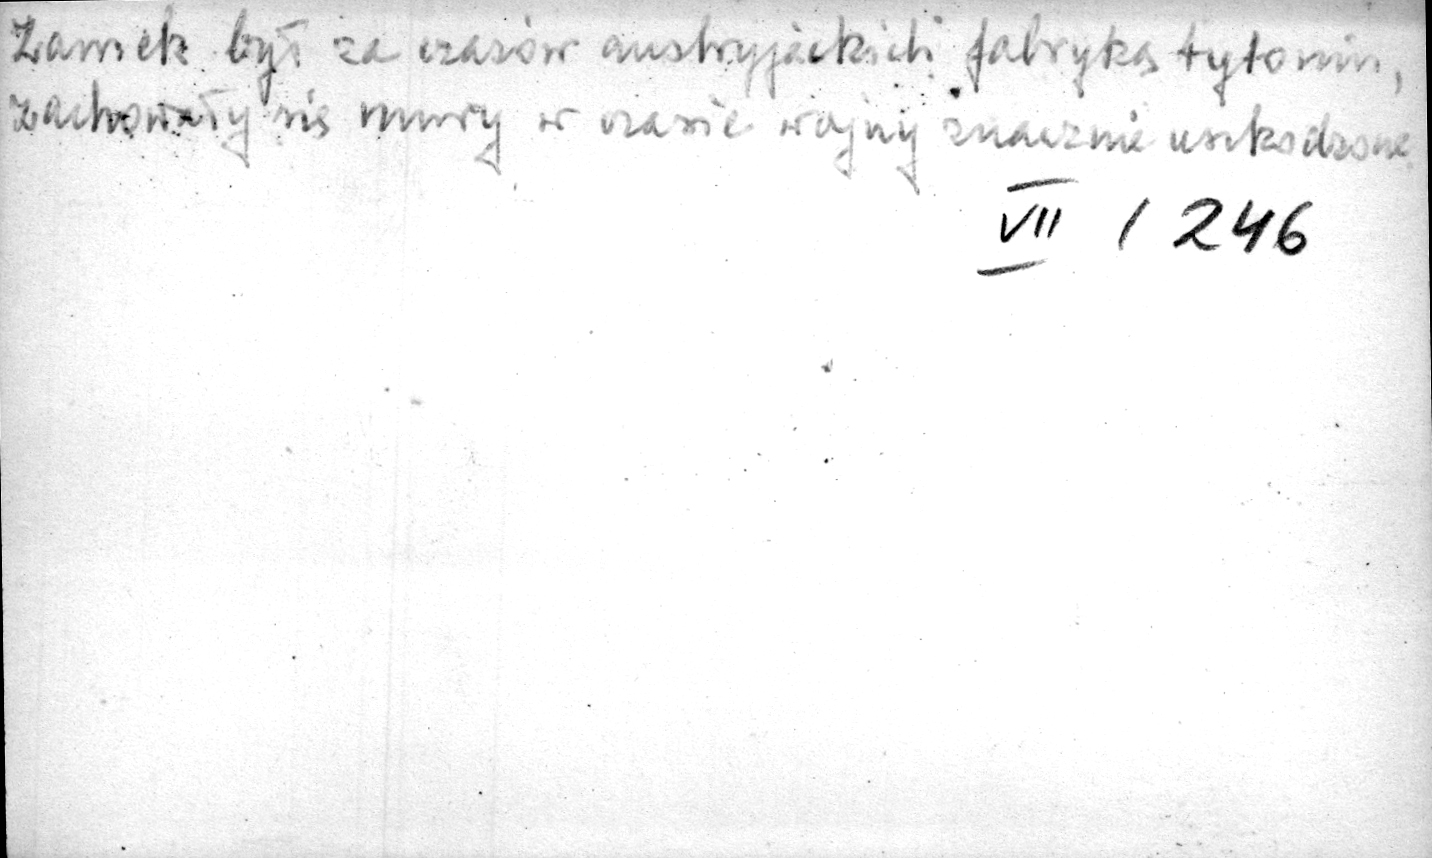 Zamek był za czasów austryjackich fabryką tytoniu,
zachowały się mury w czasie wojny znacznie uszkodzone.
VII / 246